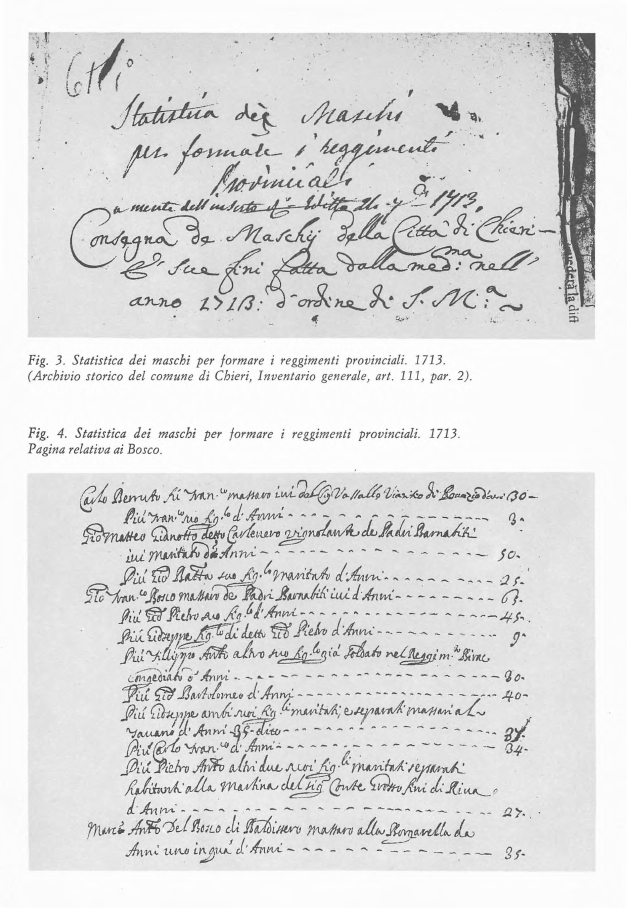 Statistica de Maschi
per formare i reggimenti
Provinciali
a mente dell' 1713.
Consegna de Maschij della Città di Chieri
sue fini fatta dalla med:ma nell'
anno 1713: d'ordine di S. M.a
vederà la diff
Fig. 3. Statistica dei maschi per formare i reggimenti provinciali. 1713.
(Archivio storico del comune di Chieri, Inventario generale, art. 111, par. 2).
Fig. 4. Statistica dei maschi per formare i reggimenti provinciali. 1713.
Pagina relativa ai Bosco.
Carlo Berruto fu Fran.co massaro ivi del Sig Vassallo di d'anni 30-
Più Fran.co suo fig.lo d'Anni - - - 3-
Gio Matteo Gianotto detto Carlevero vignolante de Padri Barnabiti
ivi maritato d'Anni - - - 50-
Più Gio Batta suo fig.lo maritato d'Anni - - - 25-
Gio Fran.co Bosco massaro de Padri Barnabiti ivi d'Anni - - - 63-
Più Gio Pietro suo fig.lo d'Anni - - - 45-
Più Giuseppe fig.lo di detto Gio Pietro d'Anni - - - 9-
Più Filippo Anto altro suo fig.lo già soldato nel Reggim.to
congediato d'Anni - - - 30-
Più Gio Bartolomeo d'Anni - - - 40-
Più Giuseppe ambi suoi fig.li maritati, e separati massari al
d'Anni 35- dico - - - 37-
Più Carlo Fran.co d'Anni - - - 34-
Più Pietro Anto altri due suoi fig.li maritati separati
habitanti alla Martina del Sig Conte Grosso fini di Riva
d'Anni - - - 27-
Marc Anto Del Bosco di Baldissero massaro alla Borgarella da
Anni uno in quà d'Anni - - - 35-